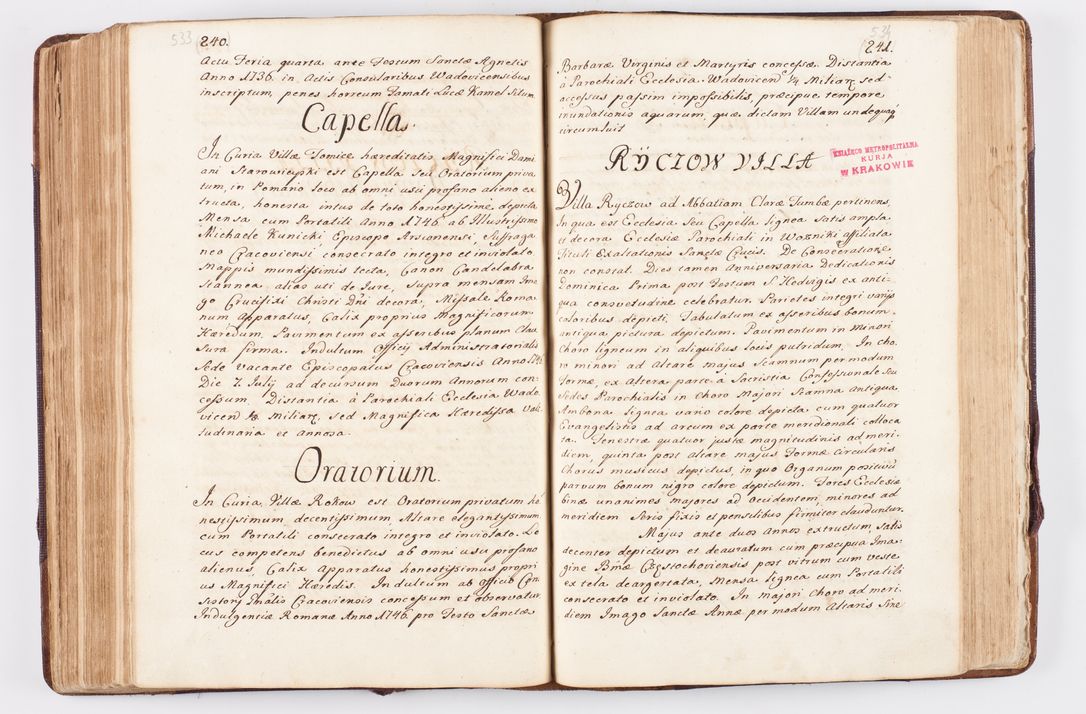 533
240.
Actu Feria quarta ante Festum Sanctæ Agnetis
Anno 1736. in Actis Consularibus Wadovicensibus
inscriptum, penes horreum Famati Lucæ Kamel Situm.
Capella.
In Curia Villæ Tomice hæreditatis Magnifici Dami
ani Starowieyski est Capella seu Oratorium priva
tum, in Pomario loco ab omni usu profano alieno ex
tructa, honesta intus de toto honestissime depicta
Mensa cum Portatili Anno 1746 ab Illustrissimo
Michaele Kunicki Episcopo Arsionensi, Suffraga
neo Cracoviensi consecrato integro et inviolato
Mappis mundissimis tecta, Canon Candelabra
Stannea, alias uti de Jure, Supra mensam Ima
go Crucifixi Christi Dni decora, Missale Roma
num apparatus, Calix proprius Magnificorum
Hæredum, Pavimentum ex asseribus planum Clau
sura firma. Indultum Officij Administratorialis
Sede Vacante Episcopatus Cracoviensis Anno 1746
Die 7 Julij ad decursum Duorum Annorum con-
cessum. Distantia à Parochiali Ecclesia Wado
vicen Miliaræ, sed Magnifica Hæredissa Vali
tudinaria et Annosa.
Oratorium.
In Curia Villæ Rokow est Oratorium privatum ho
nestissimum decentissimum Altare elegantissimum
cum Portatili consecrato integro et inviolato. Lo
cus competens benedictus ab omni usu profano
alienus, Calix Apparatus honestissimus propri
us Magnifici Hæredis. Indultum ab Officio Con
sistorij Gnalis Cracoviensis concessum et observatur
Indulgentiæ Romanæ Anno 1746. pro Festo Sanctæ
534
241.
Barbaræ Virginis et Martyris concessæ. Distantia
à Parochiali Ecclesia Wadovicen 1/4 Miliaræ sed
accessus passim impossibilis, præcipue tempore
inundationis aquarum, quæ dictam Villam undequaq
circumluit
RYCZOW VILLA
KSIĄŻĘCO METROPOLITALNA
KURJA
W KRAKOWIE
Villa Ryczow ad Abbatiam Claræ Tumbæ pertinens,
In qua est Ecclesia seu Capella lignea satis ampla
et decora Ecclesiæ Parochiali in Wozniki affiliata
Tituli Exaltationis Sanctæ Crucis. De Consecratione
non constat. Dies tamen Anniversaria Dedicationis
Dominica Prima post Festum S. Hedvigis ex anti-
qua consvetudine celebratur. Parietes integri varijs
coloribus depicti, Tabulatum ex asseribus bonum,
antiqua pictura depictum. Pavimentum in Minori
Choro ligneum in aliquibus locis putridum. In cho
ro minori ad Altare majus Scamnum per modum
Formæ, ex Altera parte à Sacristia Confessionale seu
Sedes Parochialis in Choro Majori Scamna antiqua
Ambona lignea vario colore depicta cum quatuor
Evangelistis ad arcum ex parte meridionali colloca
ta. Fenestræ quatuor justæ magnitudinis ad meri-
diem, quinta post Altare majus Formæ circularis
Chorus musicus depictus, in quo Organum positivū
parvum bonum nigro colore depictum. Fores Ecclesiæ
binæ unanimes majores ad Occidentem, minores ad
meridiem Serio fixio et pensilibus firmiter clauduntur.
Majus ante duos Annos extructum satis
decenter depictum et deauratum cum præcipua Ima-
gine Bmæ Częstochoviensis post vitrum cum veste
ex tela deargentata, Mensa lignea cum Portatili
consecrato et inviolato. In majori Choro ad meri-
diem Imago Sanctæ Annæ per modum Altaris sine